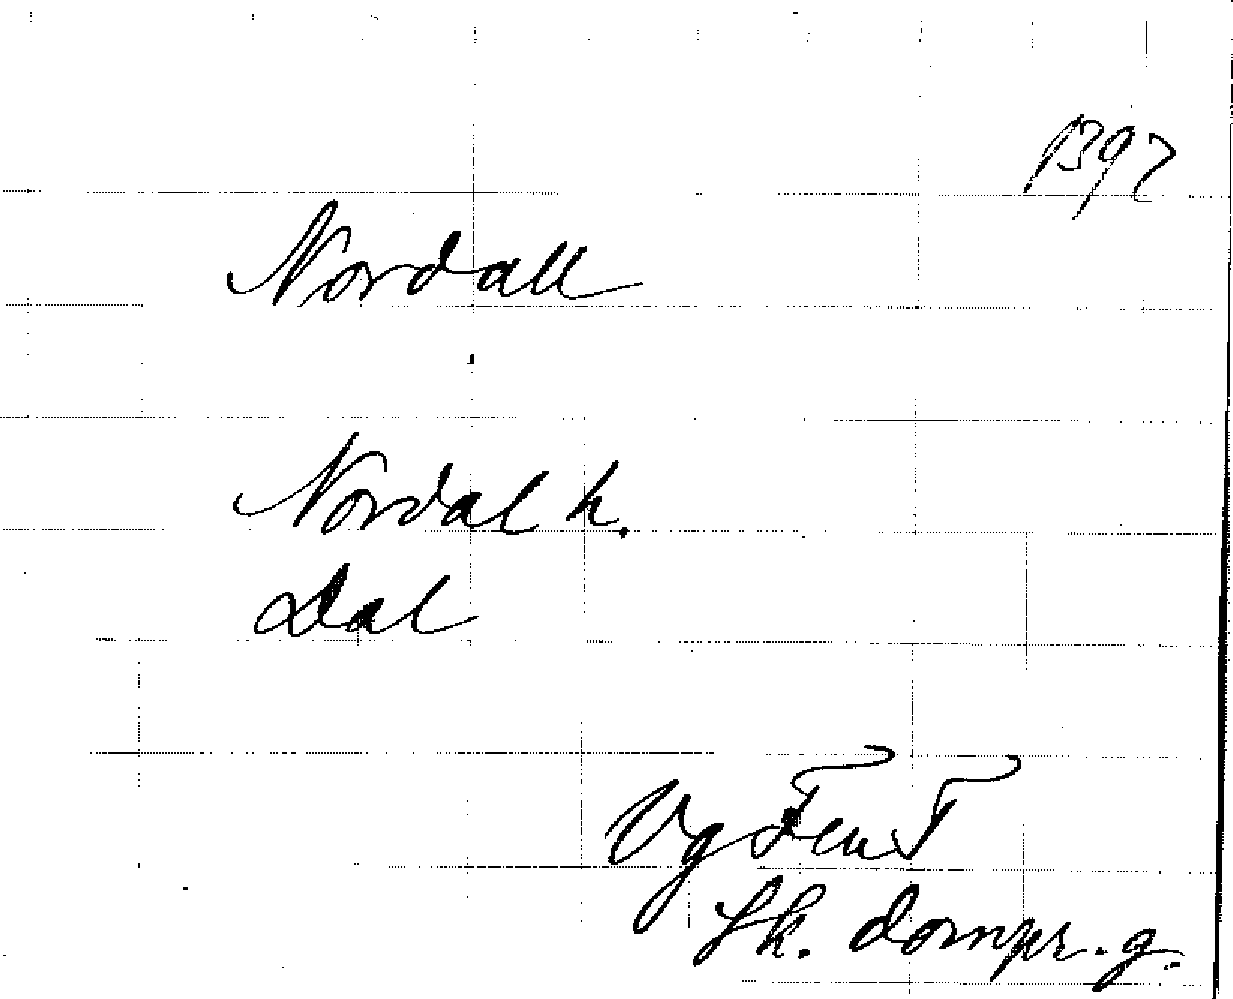 1397
Nordall
Nordal h.
Dal
Vg Fen T
Sk. dompr. g.